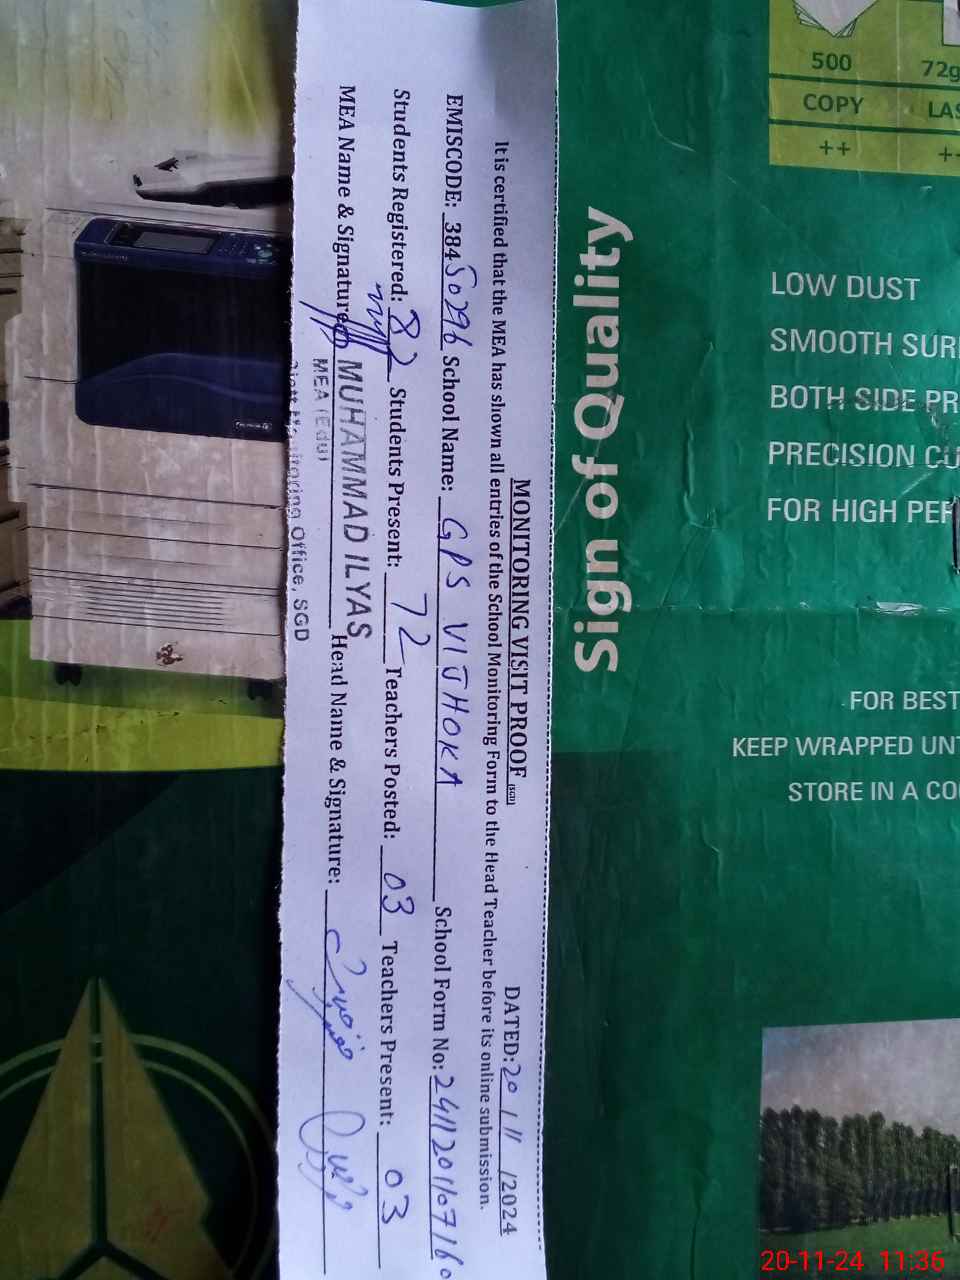 MONITORING VISIT PROOF (SGD) DATED: 20/11/2024
It is certified that the MEA has shown all entries of the School Monitoring Form to the Head Teacher before its online submission.
EMISCODE: 38450296 School Name: GPS VIJHOKA School Form No: 2411201107160
Students Registered: 82 Students Present: 72 Teachers Posted: 03 Teachers Present: 03
MEA Name & Signature: MUHAMMAD ILYAS Head Name & Signature:
MEA (Edu)
Monitoring Office, SGD
Sign of Quality
500 72g
COPY LAS
++ +
LOW DUST
SMOOTH SUR
BOTH SIDE PR
PRECISION CU
FOR HIGH PER
FOR BEST
KEEP WRAPPED UNT
STORE IN A CO
20-11-24 11:36